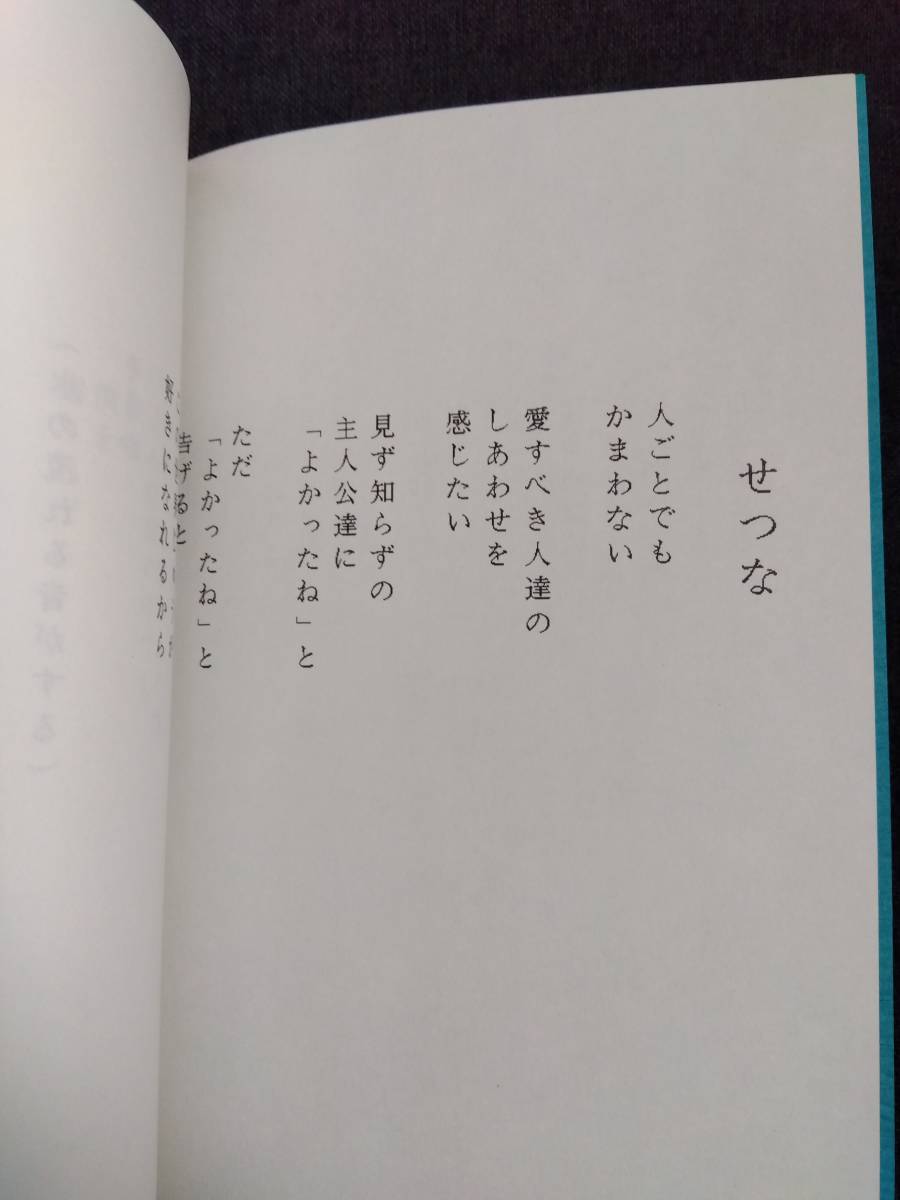 せつな
人ごとでも
かまわない
愛すべき人達の
しあわせを
感じたい
見ず知らずの
主人公達に
「よかったね」と
ただ
「よかったね」と
告げると
好きになれるから